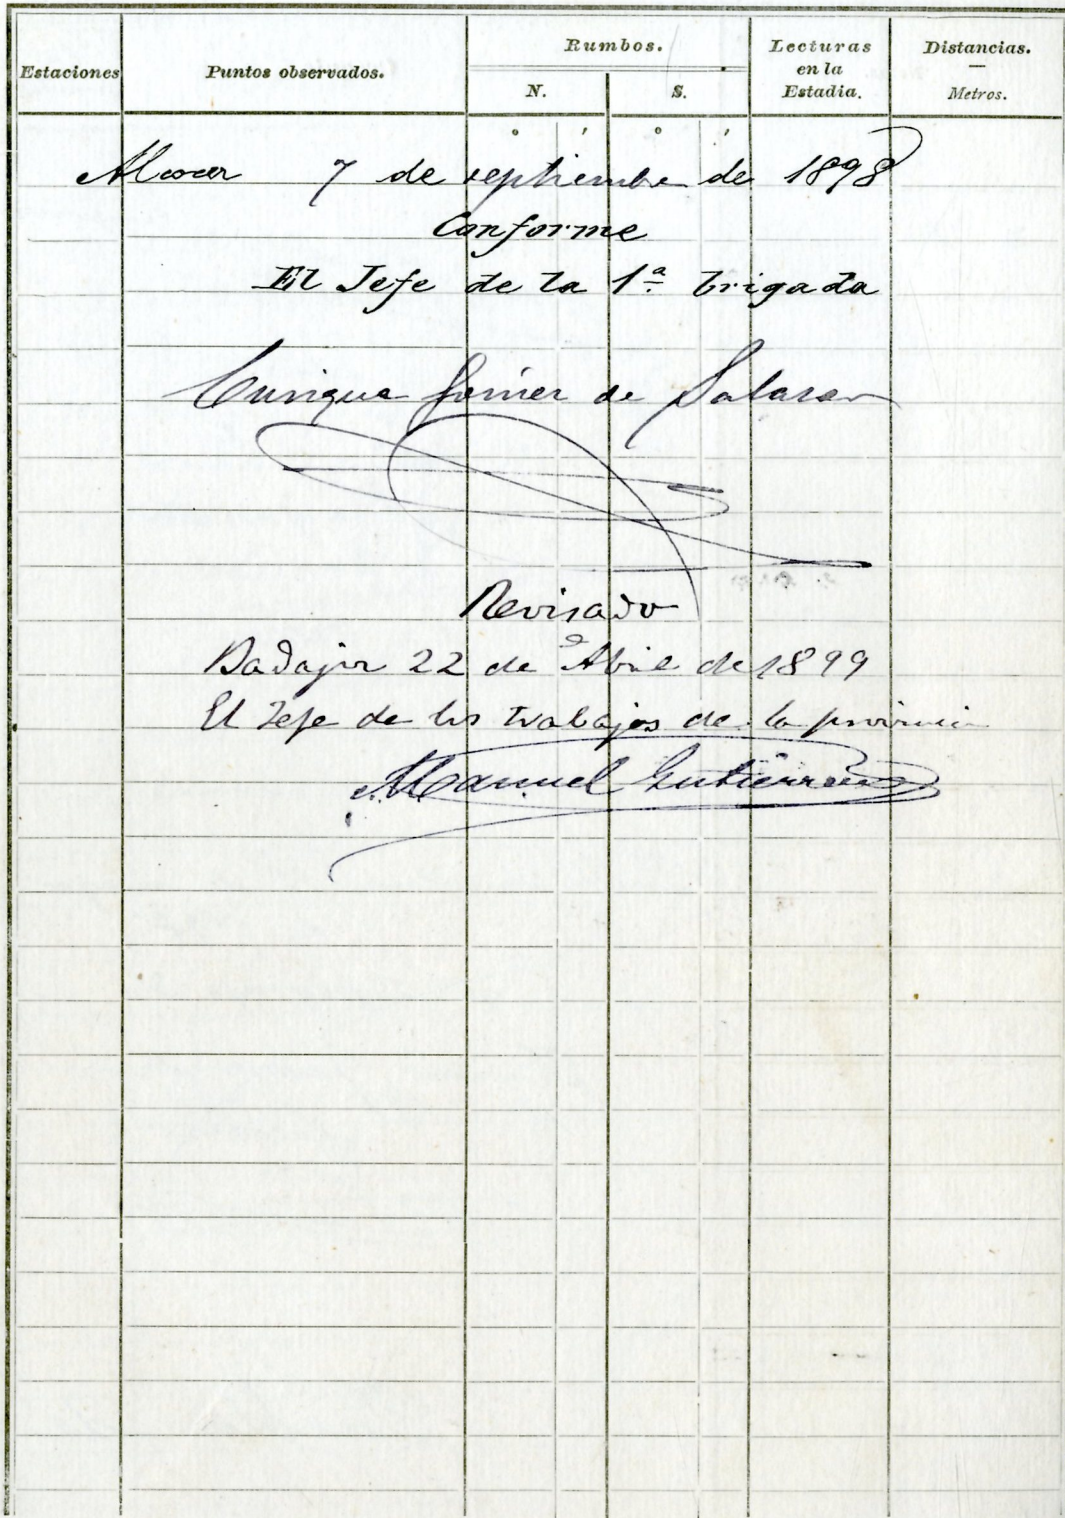 Estaciones Puntos observados. Rumbos. N. S. Lecturas en la Estadia. Distancias. — Metros.
° ' ° '
7 de septiembre de 1898
Conforme
El Jefe de la 1ª brigada
Enrique de Salazar
Revisado
Badajoz 22 de Abril de 1899
El Jefe de los trabajos de la provincia
Manuel Gutierrez